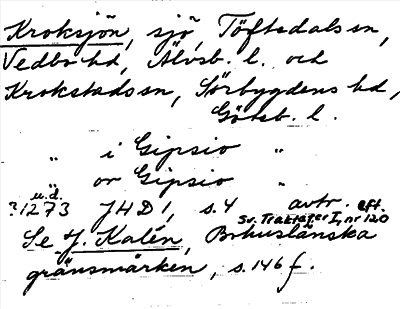 Kroksjön, sjö, Töftedals sn,
Vedbo hd, Älvsb. l. och
Krokstads sn, Sörbygdens hd,
Göteb. l.
„ i Gipsio „
„ or Gipsio „
u.d.
?1273 JHD 1, s. 4 avtr. eft.
Sv. Traktater I, nr 120
Se J. Kalén, Bohuslänska
gränsmärken, s. 146 f.